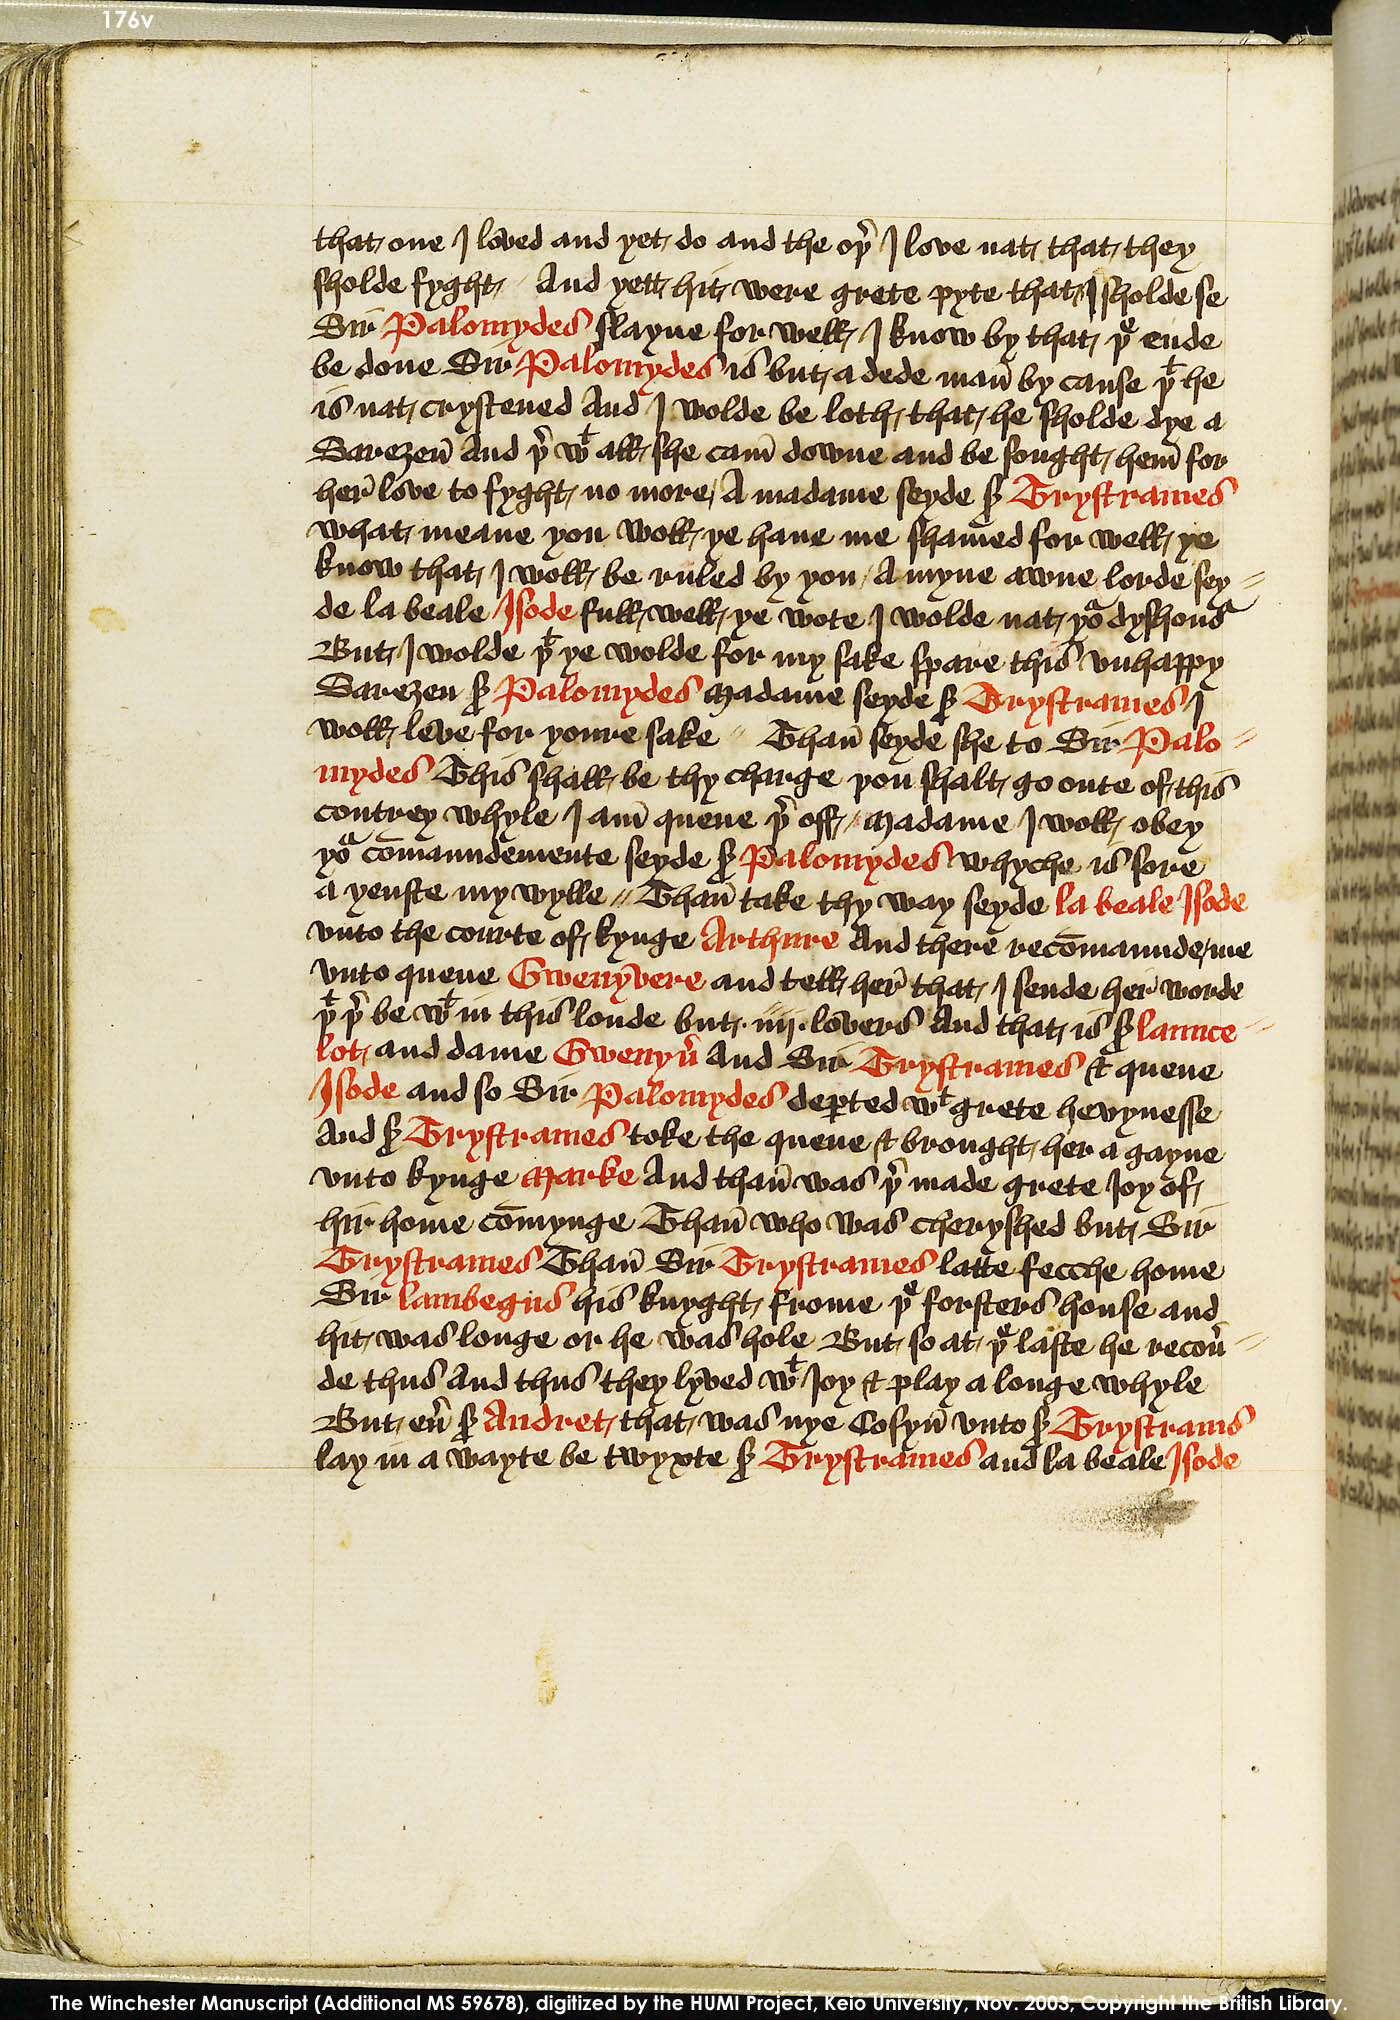 176v
that one I loved and yet do and the oþͬ I love nat that they
sholde fyght // And yett hit were grete pyte that I sholde se
Sir Palomydes slayne for well I know by that þͤ ende
be done Sir Palomydes is but a dede man̄ by cause þͭ he
is nat crystened And I wolde be loth that he sholde dye a
Sarezen̄ And þͬ wͭ all she cam̄ downe and be sought hem̄ for
her̄ love to fyght no more / A madame seyde sͬ Trystrames
what meane you woll ye have me shamed for well ye
know that I woll be ruled by you / A myne awne lorde sey //
de la beale Isode full well ye wote I wolde nat yoͬ dyshonͬ
But I wolde þͭ ye wolde for my sake spare this vnhappy
Sarezen sͬ Palomydes Madame seyde sͬ Trystrames I
woll leve for youre sake // Than̄ seyde she to Sir Palo //
mydes This shall be thy charge þou shalt go oute of this
contrey whyle I am̄ quene þͬ off // Madame I woll obey
yoͬ com̄aundemente seyde sͬ Palomydes whyche is sore
a yenste my wylle // Than̄ take thy way seyde la beale Isode
vnto the courte of kynge Arthure And there recom̄aunde me
vnto quene Gwenyvere and tell her̄ that I sende her̄ worde
þͭ þͬ be wͭ in this londe but .iiij. lovers And that is sͬ launce //
lot and dame Gwenyv̄ And Sir Trystrames & quene
Isode and so Sir Palomydes deꝑted wͭ grete hevynesse
And sͬ Trystrames toke the quene & brought her a gayne
vnto kynge Marke And than̄ was þͬ made grete Joy of
hir home com̄ynge Than̄ who was cheryshed but Sir
Trystrames Than̄ Sir Trystrames latte fecche home
Sir lambegus his knyght frome þͤ forsters house and
hit was longe or he was hole But so at þͤ laste he recov̄ //
de thus And thus they lyved wͭ Joy & play a longe whyle
But ev̄ sͬ Andret that was nye Cosyn̄ vnto sͬ Trystrams
lay in a wayte be twyxte sͬ Trystrames and la beale Isode
The Winchester Manuscript (Additional MS 59678), digitized by the HUMI Project, Keio University, Nov. 2003, Copyright the British Library.